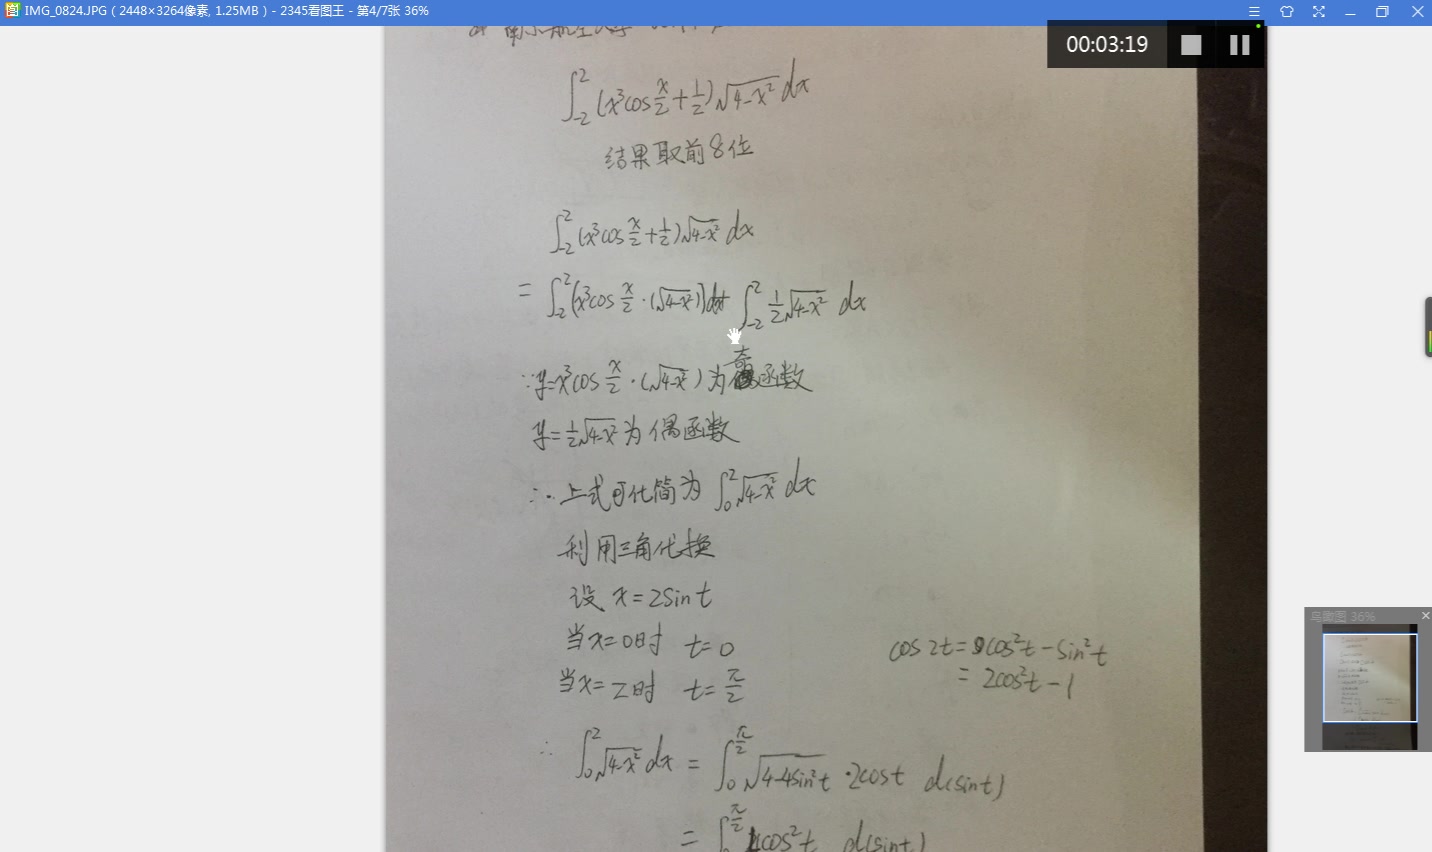 IMG_0824.JPG ( 2448×3264像素, 1.25MB ) - 2345看图王 - 第4/7张 36%
00:03:19
∫₋₂² (x³cos x/2 + 1/2)√(4-x²) dx
结果取前8位
∫₋₂² (x³cos x/2 + 1/2)√(4-x²) dx
= ∫₋₂² [x³cos x/2 · (√(4-x²))]dx+ ∫₋₂² 1/2 √(4-x²) dx
∵y=x³cos x/2 · (√(4-x²)) 为奇函数
y=1/2 √(4-x²) 为偶函数
∴ 上式可化简为 ∫₀² √(4-x²) dx
利用三角代换
设 x=2sin t
当x=0时 t=0
当x=2时 t=π/2
cos2t=cos²t-sin²t
=2cos²t-1
∴ ∫₀² √(4-x²) dx = ∫₀^(π/2) √(4-4sin²t) ·2cost d(sint)
= ∫₀^(π/2) 4cos²t d(sint)
鸟瞰图 36%